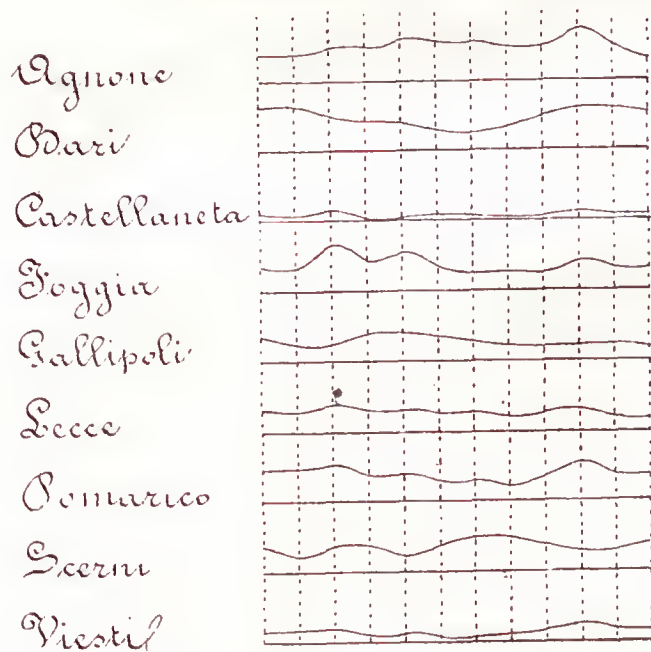 Agnone
Bari
Castellaneta
Foggia
Gallipoli
Lecce
Pomarico
Scerni
Viesti